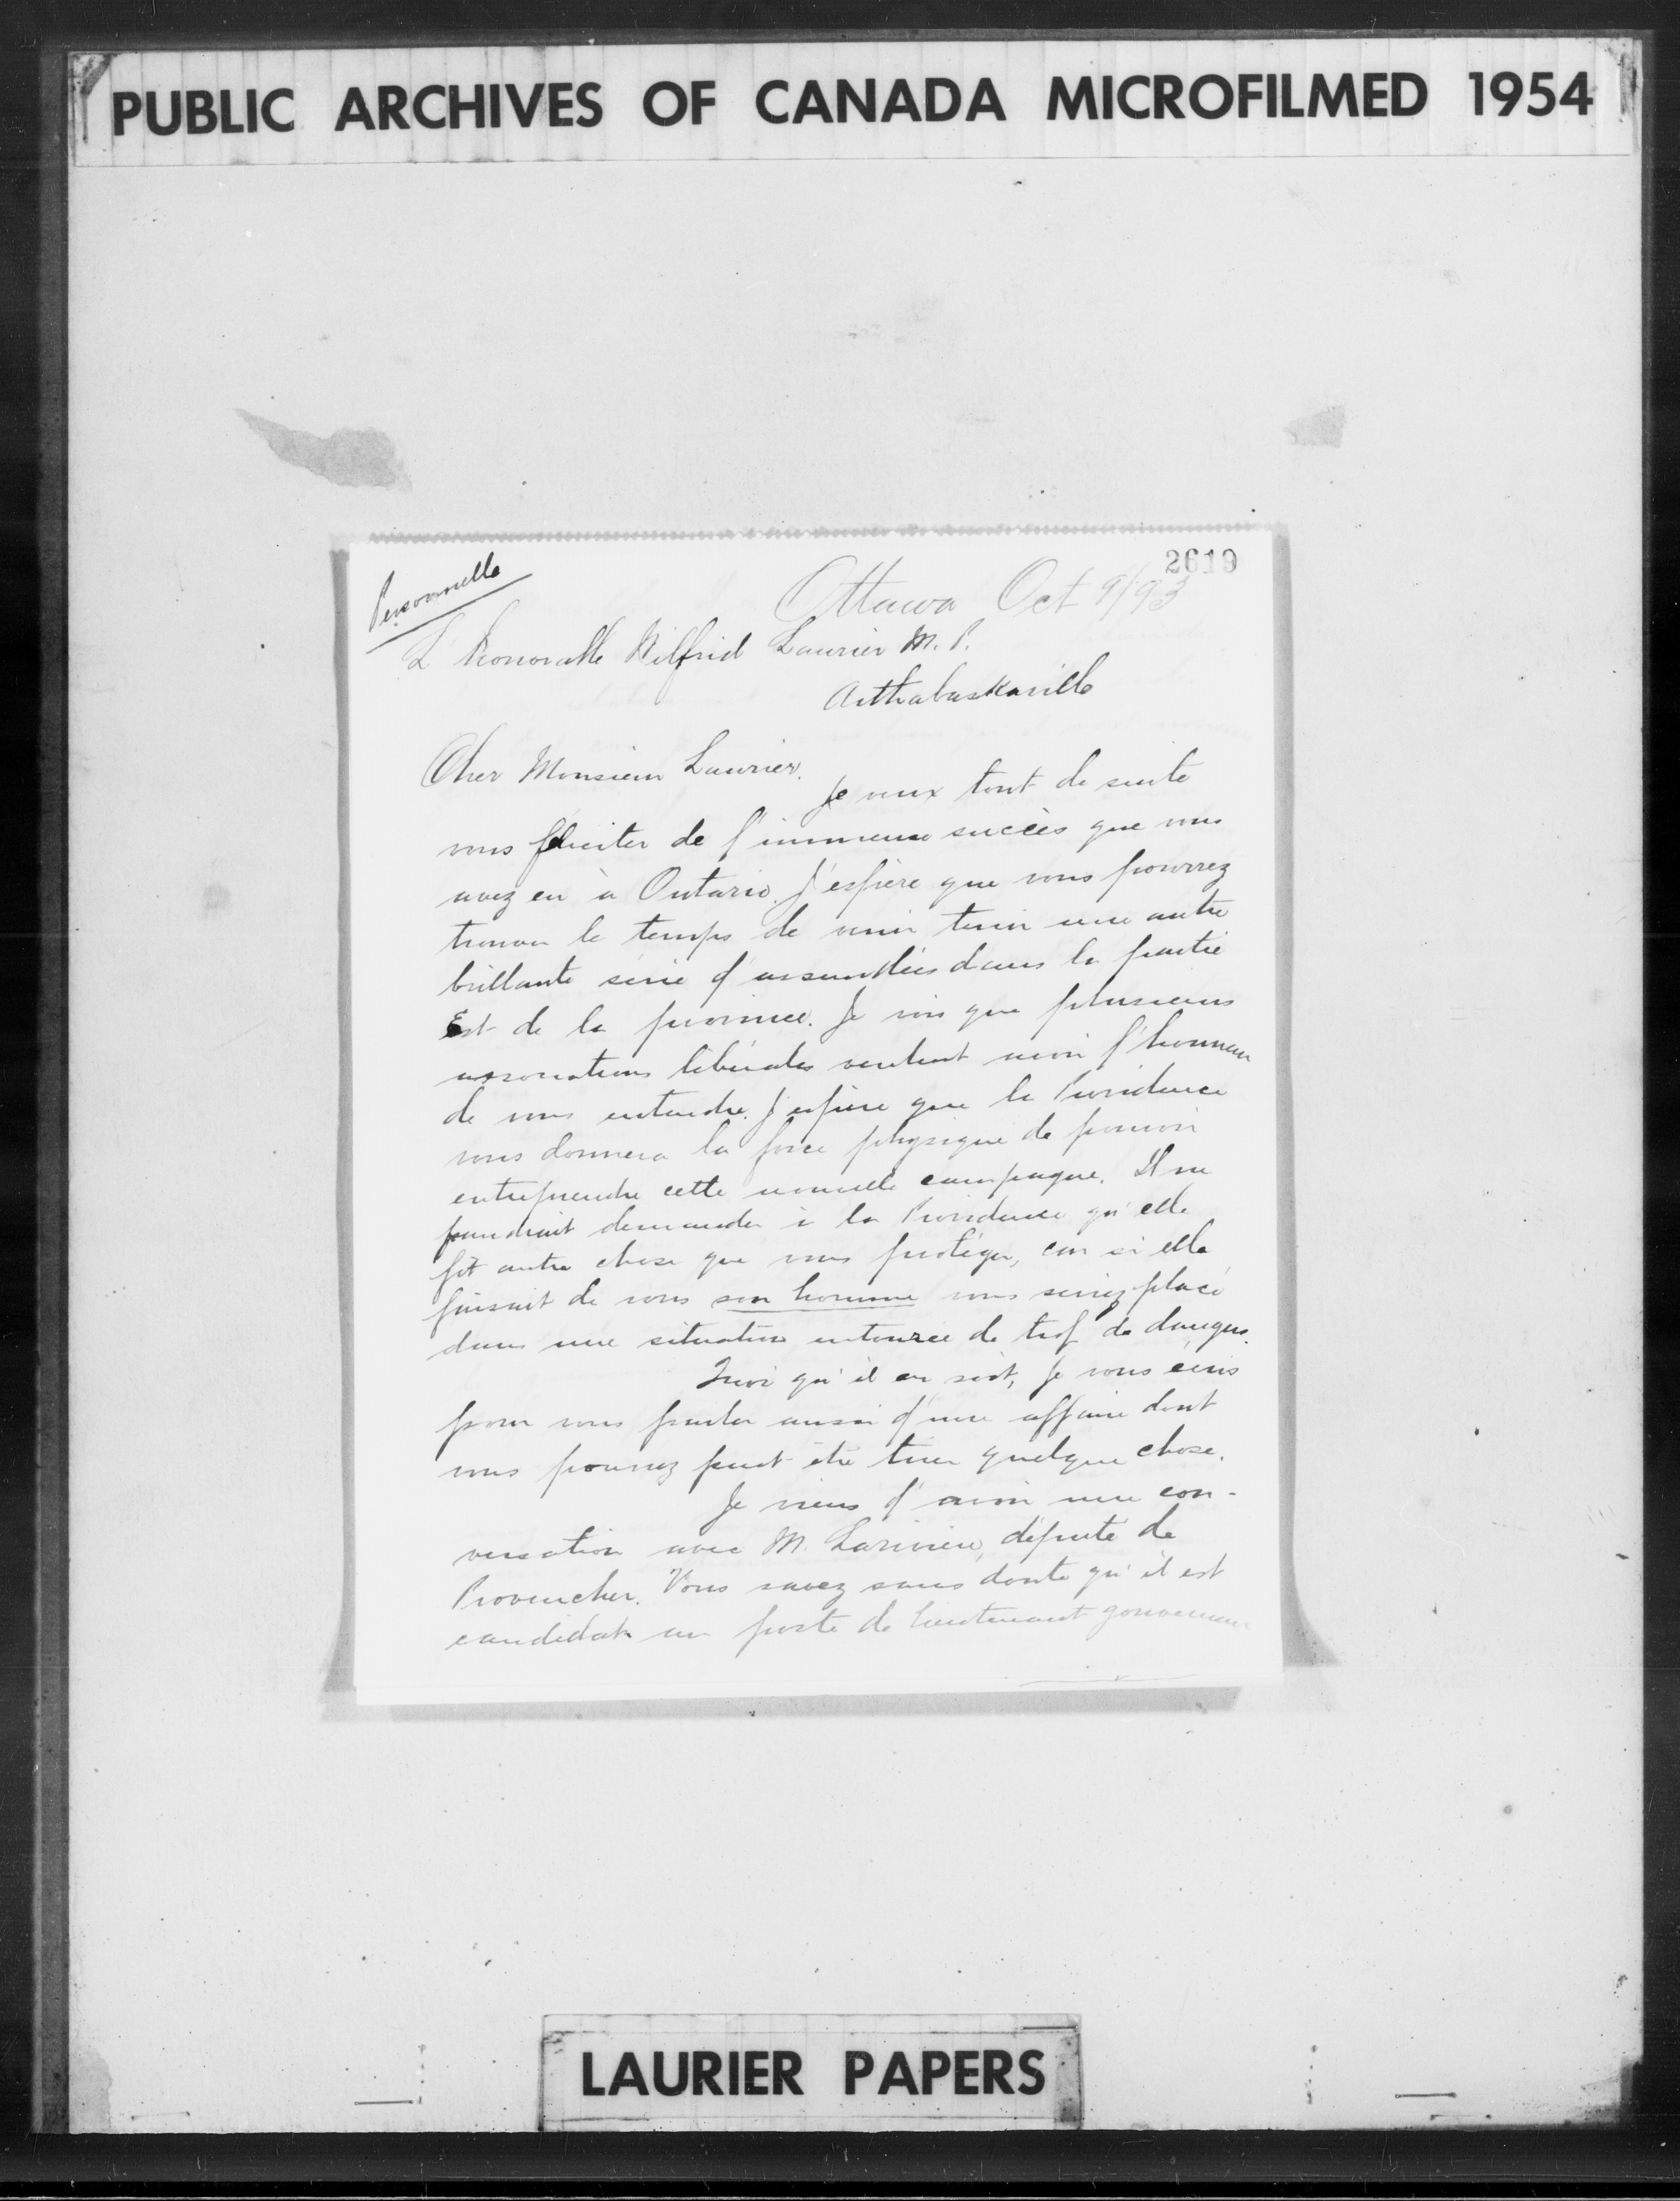 PUBLIC ARCHIVES OF CANADA MICROFILMED 1954
2619
Personnelle
Ottawa Oct 9/93
L'honorable Wilfrid Laurier M. P.
Arthabaskaville
Cher Monsieur Laurier.
Je veux tout de suite
vous féliciter de l'immense succès que vous
avez eu à Ontario. J'espère que vous pourrez
trouver le temps de venir tenir une autre
brillante série d'assemblées dans la partie
Est de la province. Je vois que plusieurs
associations libérales veulent avoir l'honneur
de vous entendre. J'espère que la Providence
vous donnera la force physique de pouvoir
entreprendre cette nouvelle campagne. Il ne
faudrait demander à la Providence qu'elle
fit autre chose que vous protéger, car si elle
faisait de vous son homme vous seriez placé
dans une situation entourée de trop de dangers.
Quoi qu'il en soit, je vous écris
pour vous parler aussi d'une affaire dont
vous pourrez peut-être tirer quelque chose.
Je viens d'avoir une con-
versation avec M. Larivière, député de
Provencher. Vous savez sans doute qu'il est
candidat au poste de lieutenant gouverneur
LAURIER PAPERS